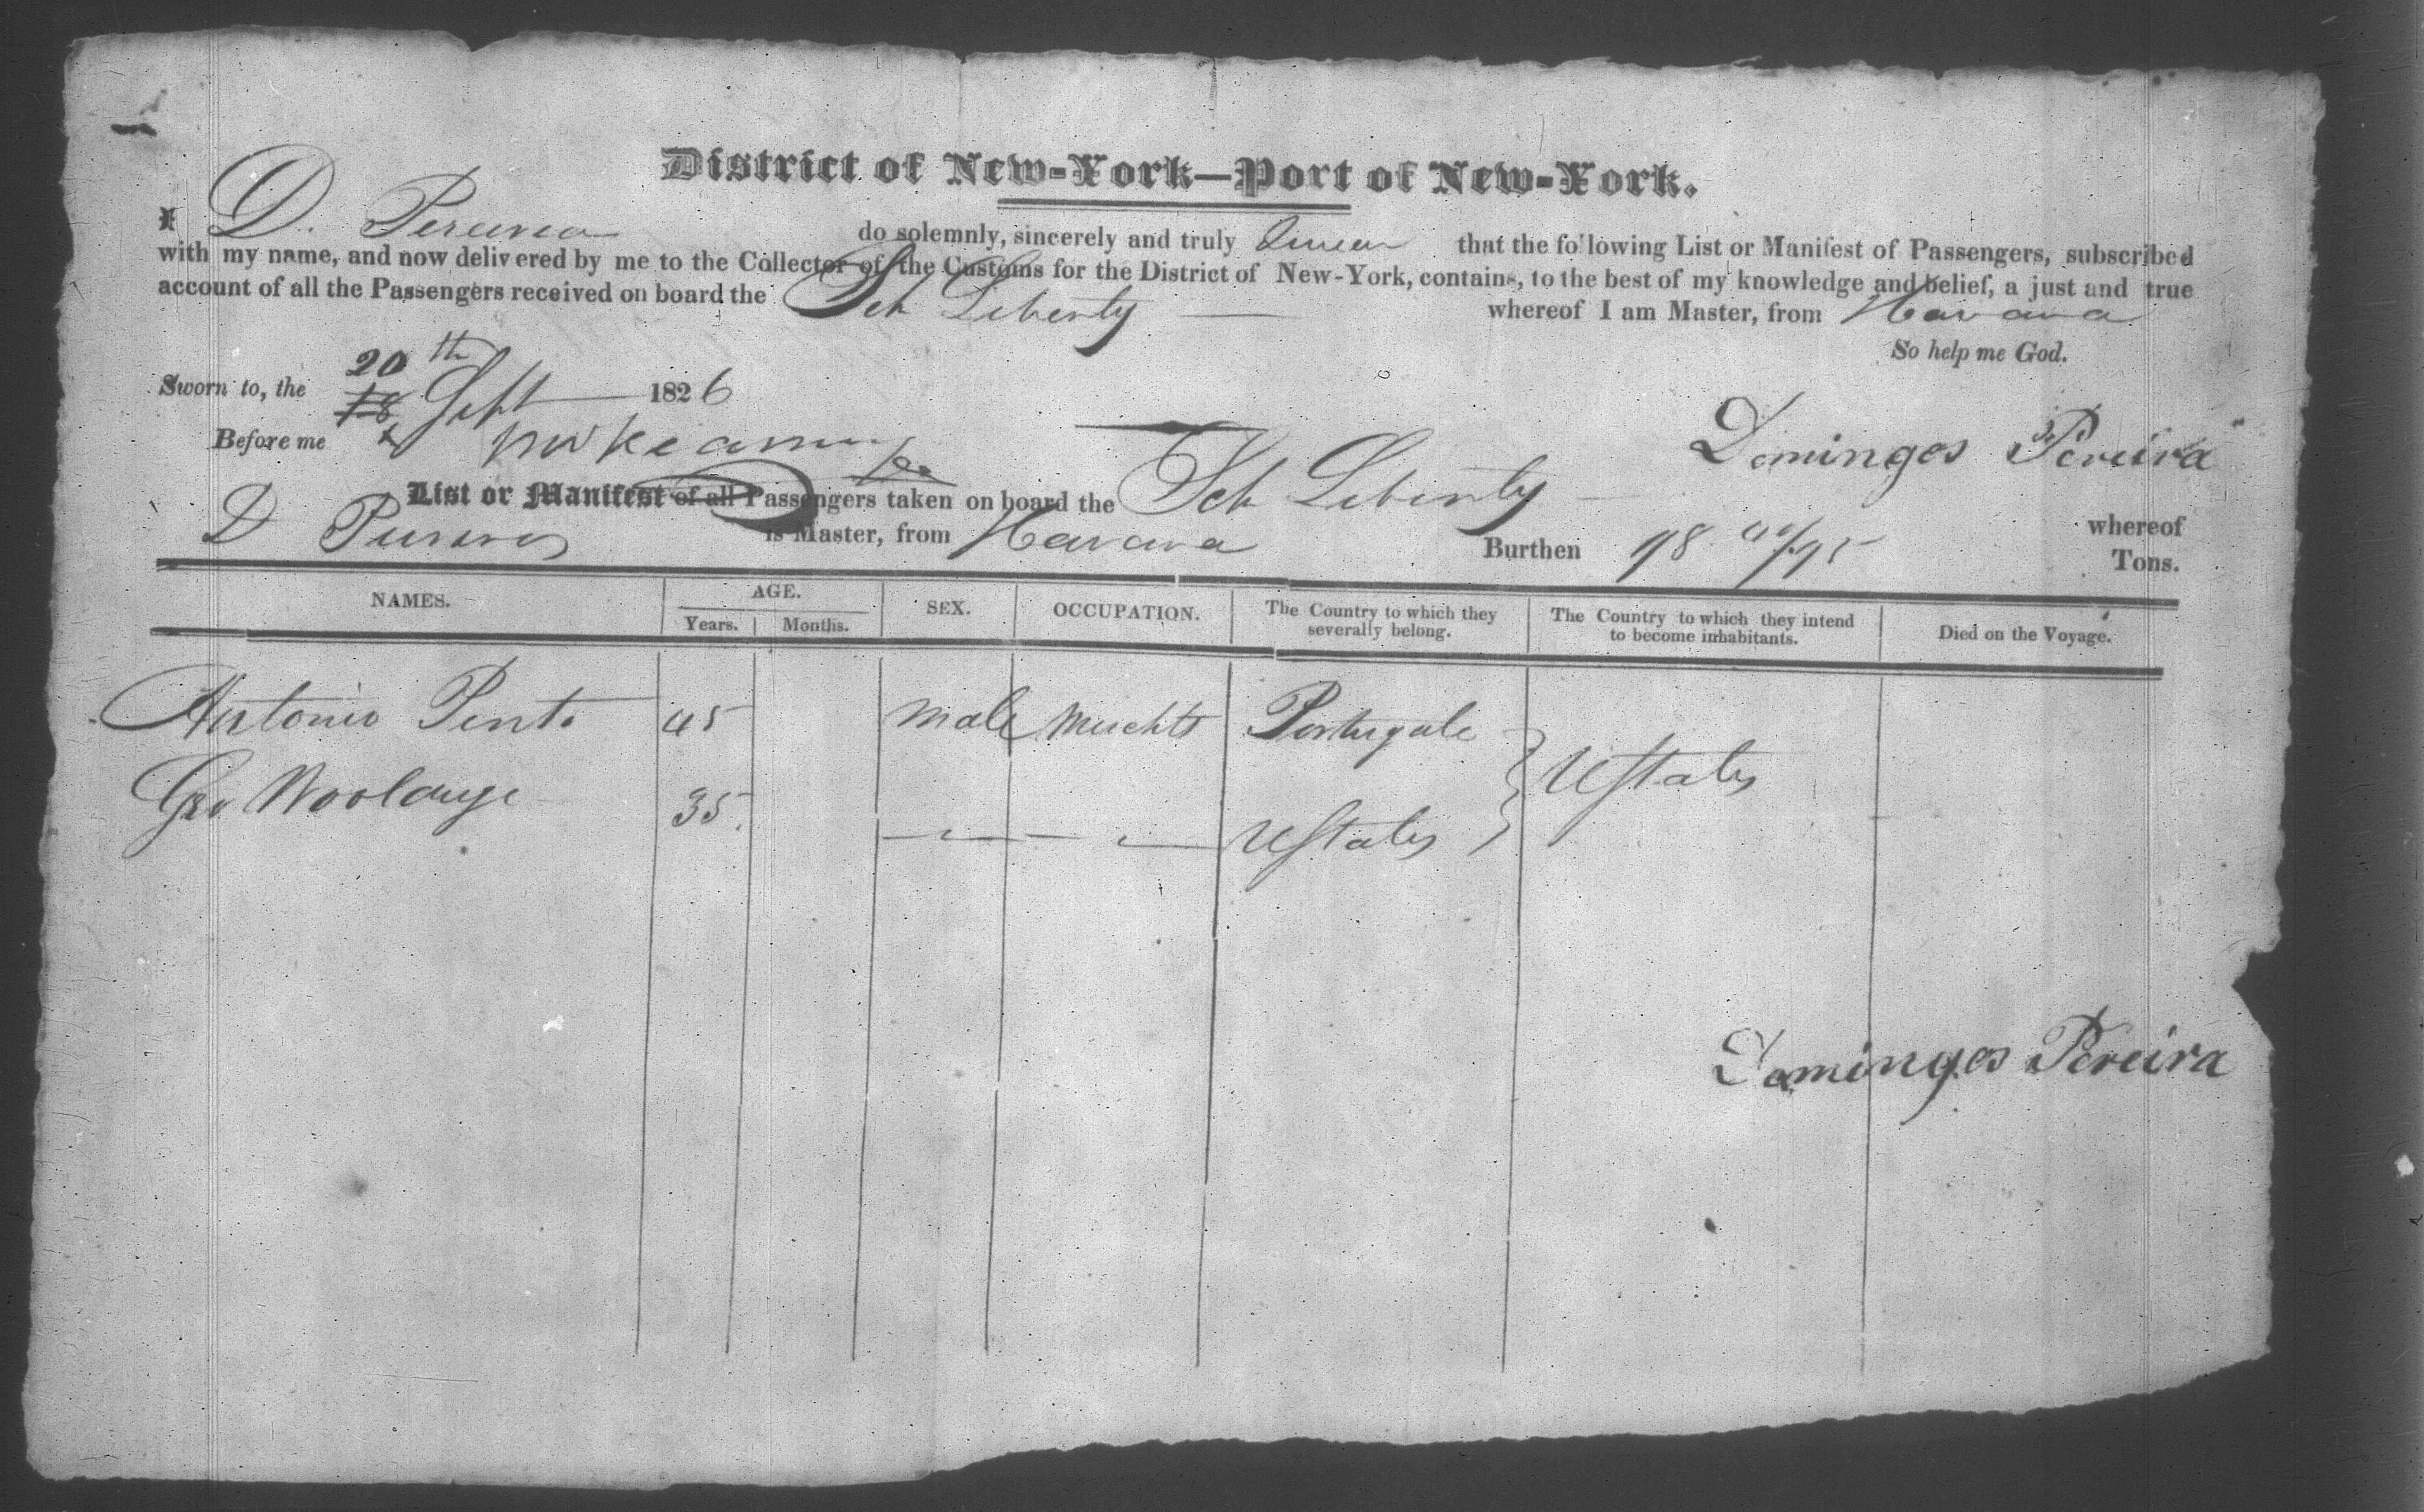 District of New-York—Port of New-York.
I D. Pereira do solemnly, sincerely and truly Swear that the following List or Manifest of Passengers, subscribed
with my name, and now delivered by me to the Collector of the Customs for the District of New-York, contains, to the best of my knowledge and belief, a just and true
account of all the Passengers received on board the Sch Liberty whereof I am Master, from Havana
So help me God.
Sworn to, the 18 20th Sept 1826
Before me
Domingos Pereira
List or Manifest of all Passengers taken on board the Sch Liberty whereof
D is Master, from Havana Burthen 98 Tons.
NAMES. AGE. SEX. OCCUPATION. The Country to which they severally belong. The Country to which they intend to become inhabitants. Died on the Voyage.
Years. Months.
Antonio Pinto 45 male Merchts Portugale
UStates
Geo 35. UStates
Domingos Pereira